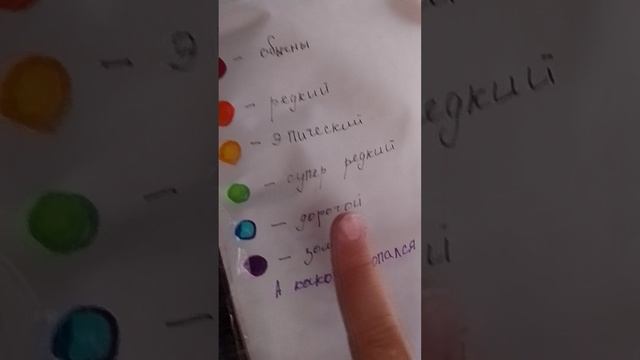 - обычны
- редкий
- эпический
- супер редкий
- дорогой
-
А попался